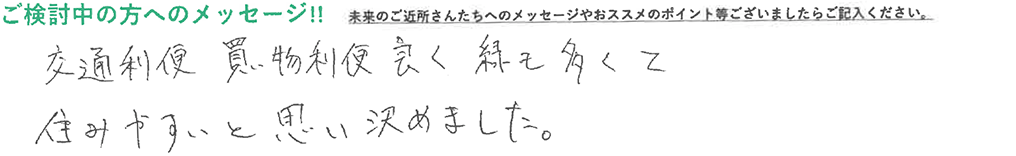 ご検討中の方へのメッセージ!! 未来のご近所さんたちへのメッセージやおススメのポイント等ございましたらご記入ください。
交通利便 買い物利便 良く 緑も多くて
住みやすいと思い決めました。